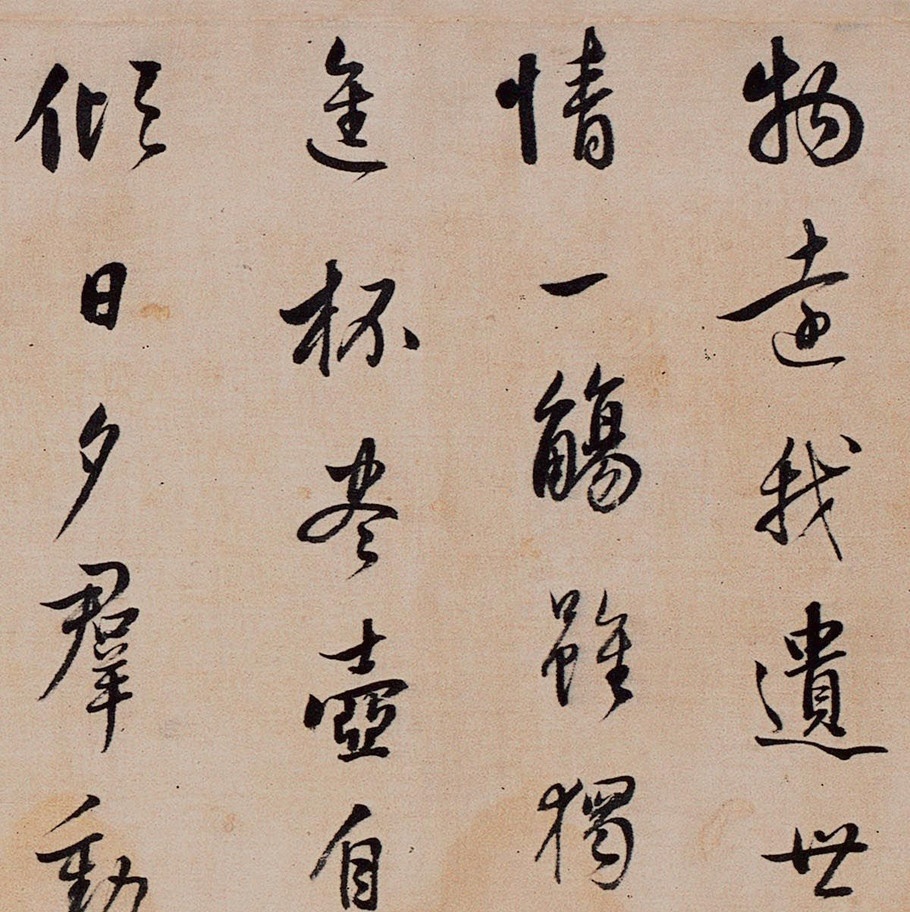 物遠我遺世
情一觴雖獨
進杯尽壺自
傾日夕羣動